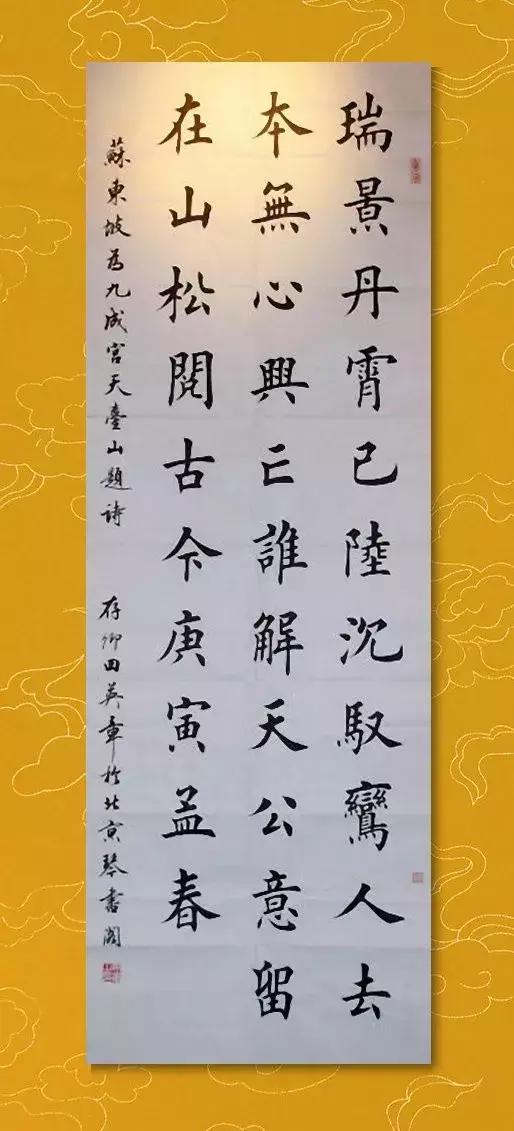 瑞景丹霄已陸沉馭鸞人去
本無心興亡誰解天公意留
在山松閱古今庚寅孟春
蘇東坡為九成宮天臺山題詩　存卿田英章於北京琴書閣